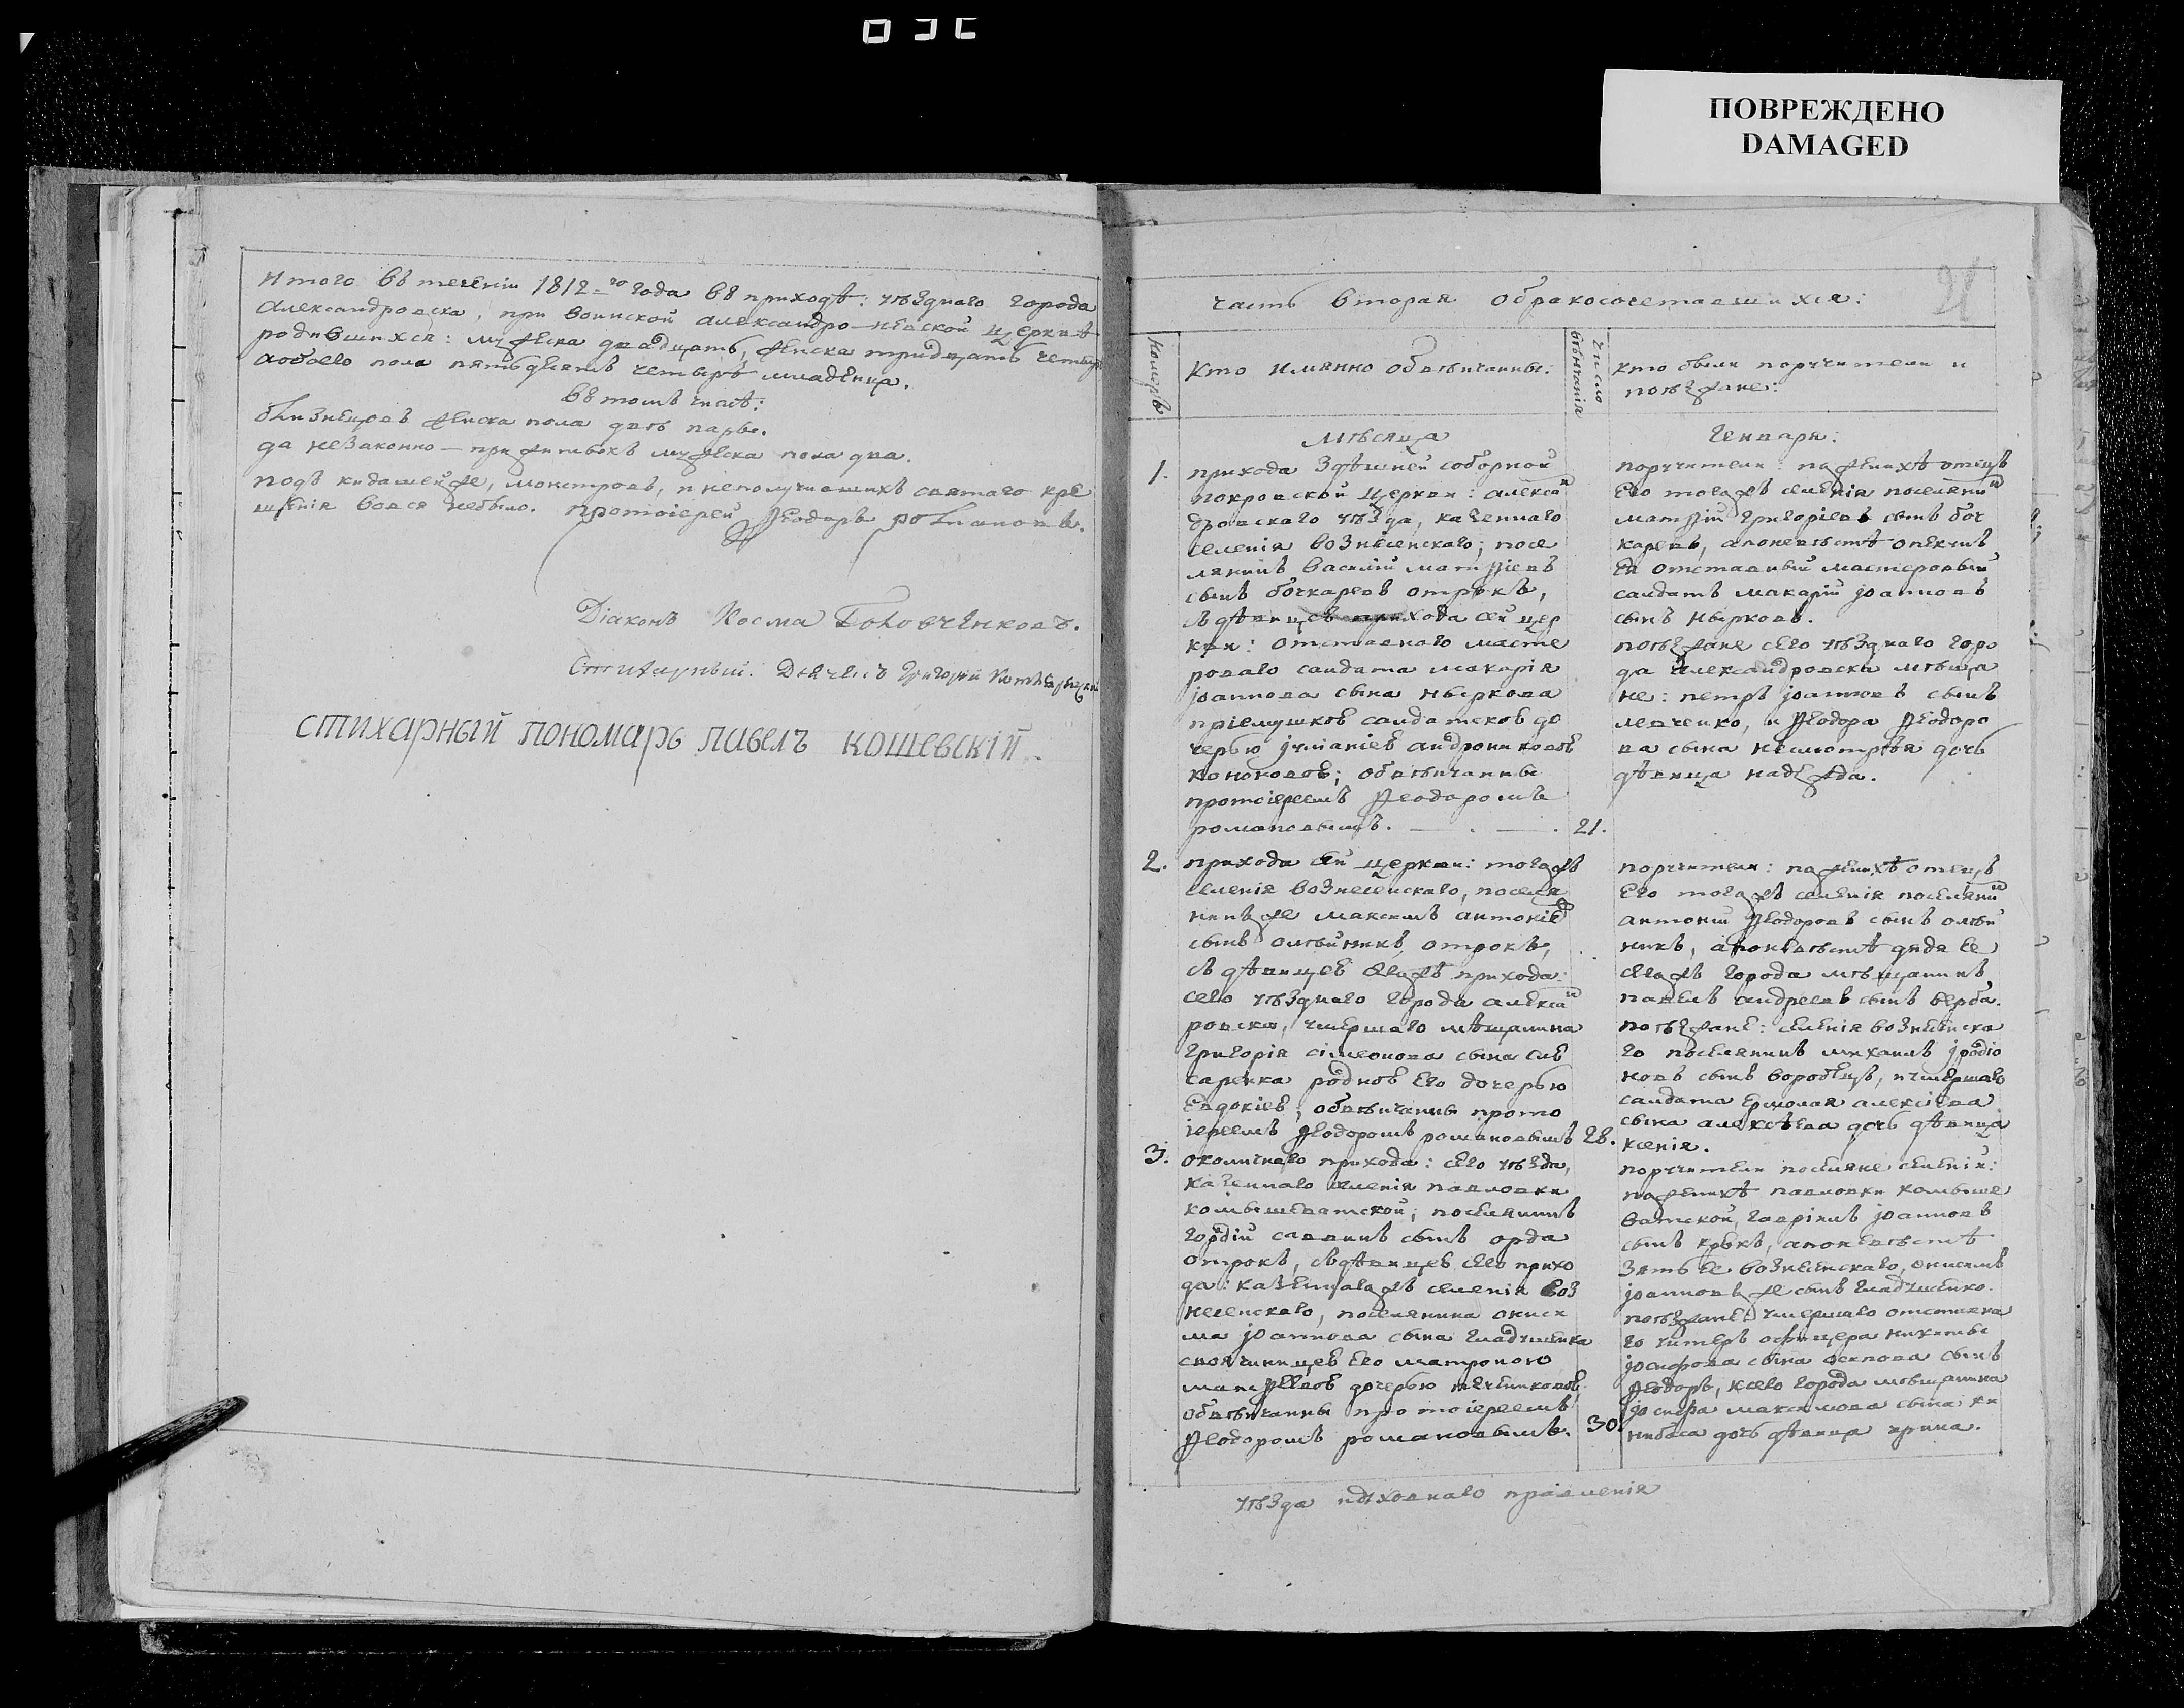 ПОВРЕЖДЕНО
DAMAGED
Итого въ теченіи 1812-го года въ приходѣ: уѣзднаго города
Александровска, при воинской александро-невской церквѣ
родившихся: мужеска двадцать, женска тридцать четыре
аобоего пола пятьдесятъ четыре младенца.
Въ томъ числѣ:
близнецовъ женска пола двѣ пары.
да незаконно-прижитыхъ мужеска пола два.
подкидышей же, монстровъ, и неполучившихъ святаго кре
щенія вовся небыло. Протоіерей Ѳеодоръ романовъ.
Діаконъ Косма Головченковъ.
Стихарный. Дьячекъ Григорій
стихарный пономарь павелъ кошевскій.
21
часть вторая обракосочетавшихся:
номеръ
Кто имянно обвѣнчанны:
число вѣнчанія
кто были поручители и
поѣзжане:
мѣсяца
Генваря:
1.
прихода здѣшней соборной
покровской церкви: алексан
дровскаго уѣзда, казеннаго
селенія вознесенскаго; посе
лянинъ василій матѳіевъ
сынъ бочкаревъ отрокъ,
съ дѣвицею прихода сей цер
кви: отставнаго масте
роваго салдата макарія
іоаннова сына ныркова
пріемушкою салдатскою до
черью іуліаніею андрониковою
коноховою; обвѣнчанны
протоіереемъ Ѳеодоромъ
романовымъ.
21.
поручители: пожениху отецъ
его тогожъ селенія поселянин
матѳій григоріевъ сынъ боч
каревъ, апоневѣстѣ опекунъ
ея отставный мастеровый
салдатъ макарій іоанновъ
сынъ нырковъ.
поѣзжане сего уѣзднаго горо
да александровска мѣщане
не: петръ іоанновъ сынъ
левченко, и Ѳеодора Ѳеодоро
ва сына несмотрѣя дочь
дѣвица надежда.
2.
прихода сей церкви: тогожъ
селенія вознесенскаго, поселя
нинъ же максимъ антоніев
сынъ олѣйникъ, отрокъ,
съ дѣвицею сегожъ прихода
сего уѣзднаго города алексан
ровска, умершаго мѣщанина
григорія сімеонова сына
саренка родною его дочерью
Евдокіею; обвѣнчанны прото
іереемъ Ѳеодоромъ романовымъ
28.
поручители: пожениху отецъ
его тогожъ селенія поселянин
антоній Ѳеодоровъ сынъ олѣй
никъ, апоневѣстѣ дядя ее
сегожъ города мѣщанинъ
павелъ андреевъ сынъ верба.
поѣзжане: селенія вознесенска
го поселянинъ михаилъ іродіо
новъ сынъ воробецъ, иумершаго
салдата ермолая алексіева
сына алексѣева дочь дѣвица
ксенія.
3.
околичнаго прихода: сего уѣзда,
казеннаго селенія павловки
комышеватской; поселянинъ
гордій саввинъ сынъ орда
отрокъ, съдѣвицею сего прихо
да: казеннагожъ селенія воз
несенскаго, поселянина онися
ма іоаннова сына гладушенка
своячиницею его матроною
матѳѣевою дочерью
обвѣнчанны протоіереемъ
Ѳеодоромъ романовымъ.
30.
поручители поселяне селеній:
пожениху павловки комыше
ватской, гавріилъ іоанновъ
сынъ крькъ, апоневѣстѣ
зять ее вознесенскаго, онисимъ
іоанновъ же сынъ гладушенко.
поѣзжане: умершаго отставна
го унтеръ офицера никиты
іосифова сына осипова сынъ
Ѳеодоръ, исего города мѣщанина
іосифа максимова сына ки
дочь дѣвица ирина.
уѣзда духовнаго правленія